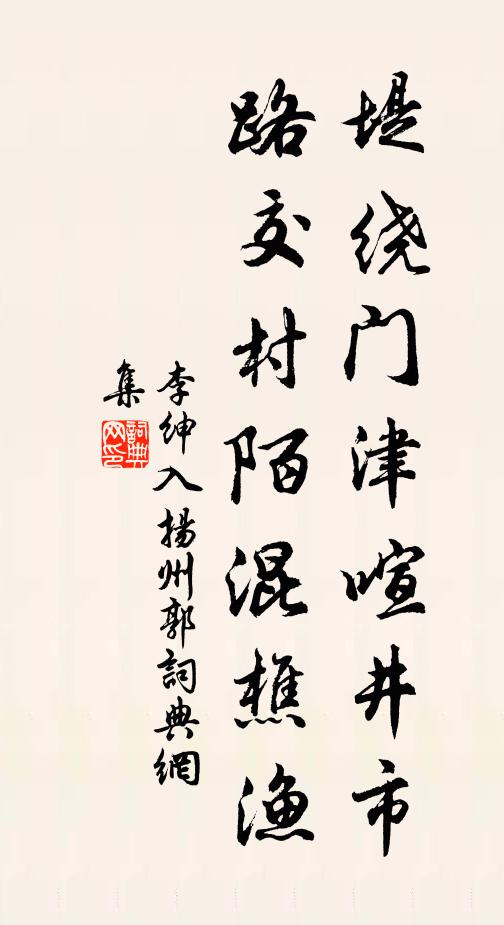 堤绕门津喧井市
路交村陌混樵渔
李绅入揚州郭詞典網
集
詞典網印